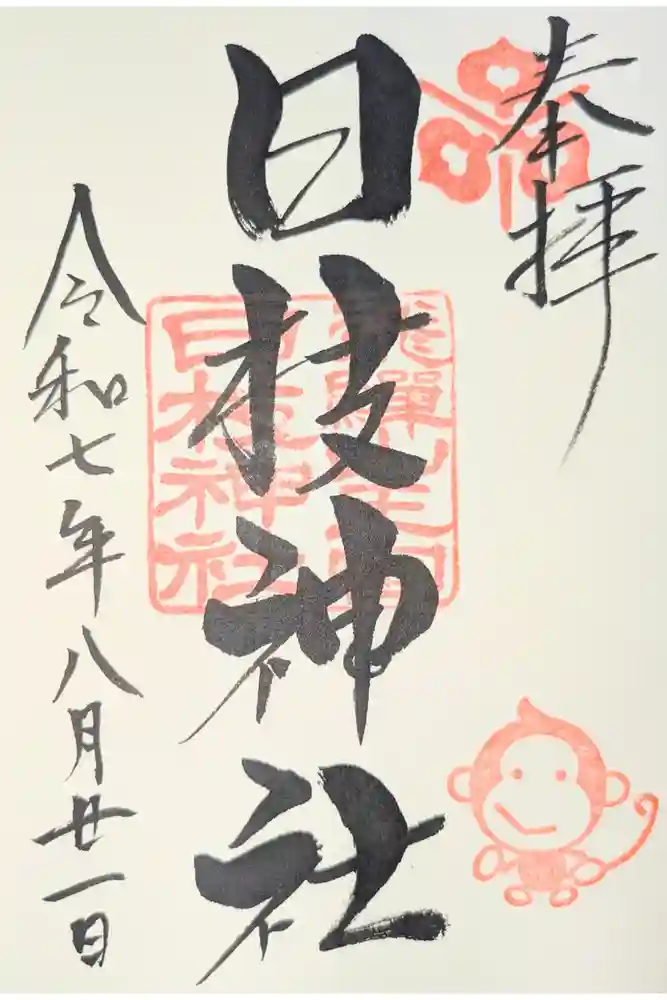 奉拝
日枝神社
飛騨山王宮
日枝神社
令和七年八月廿一日